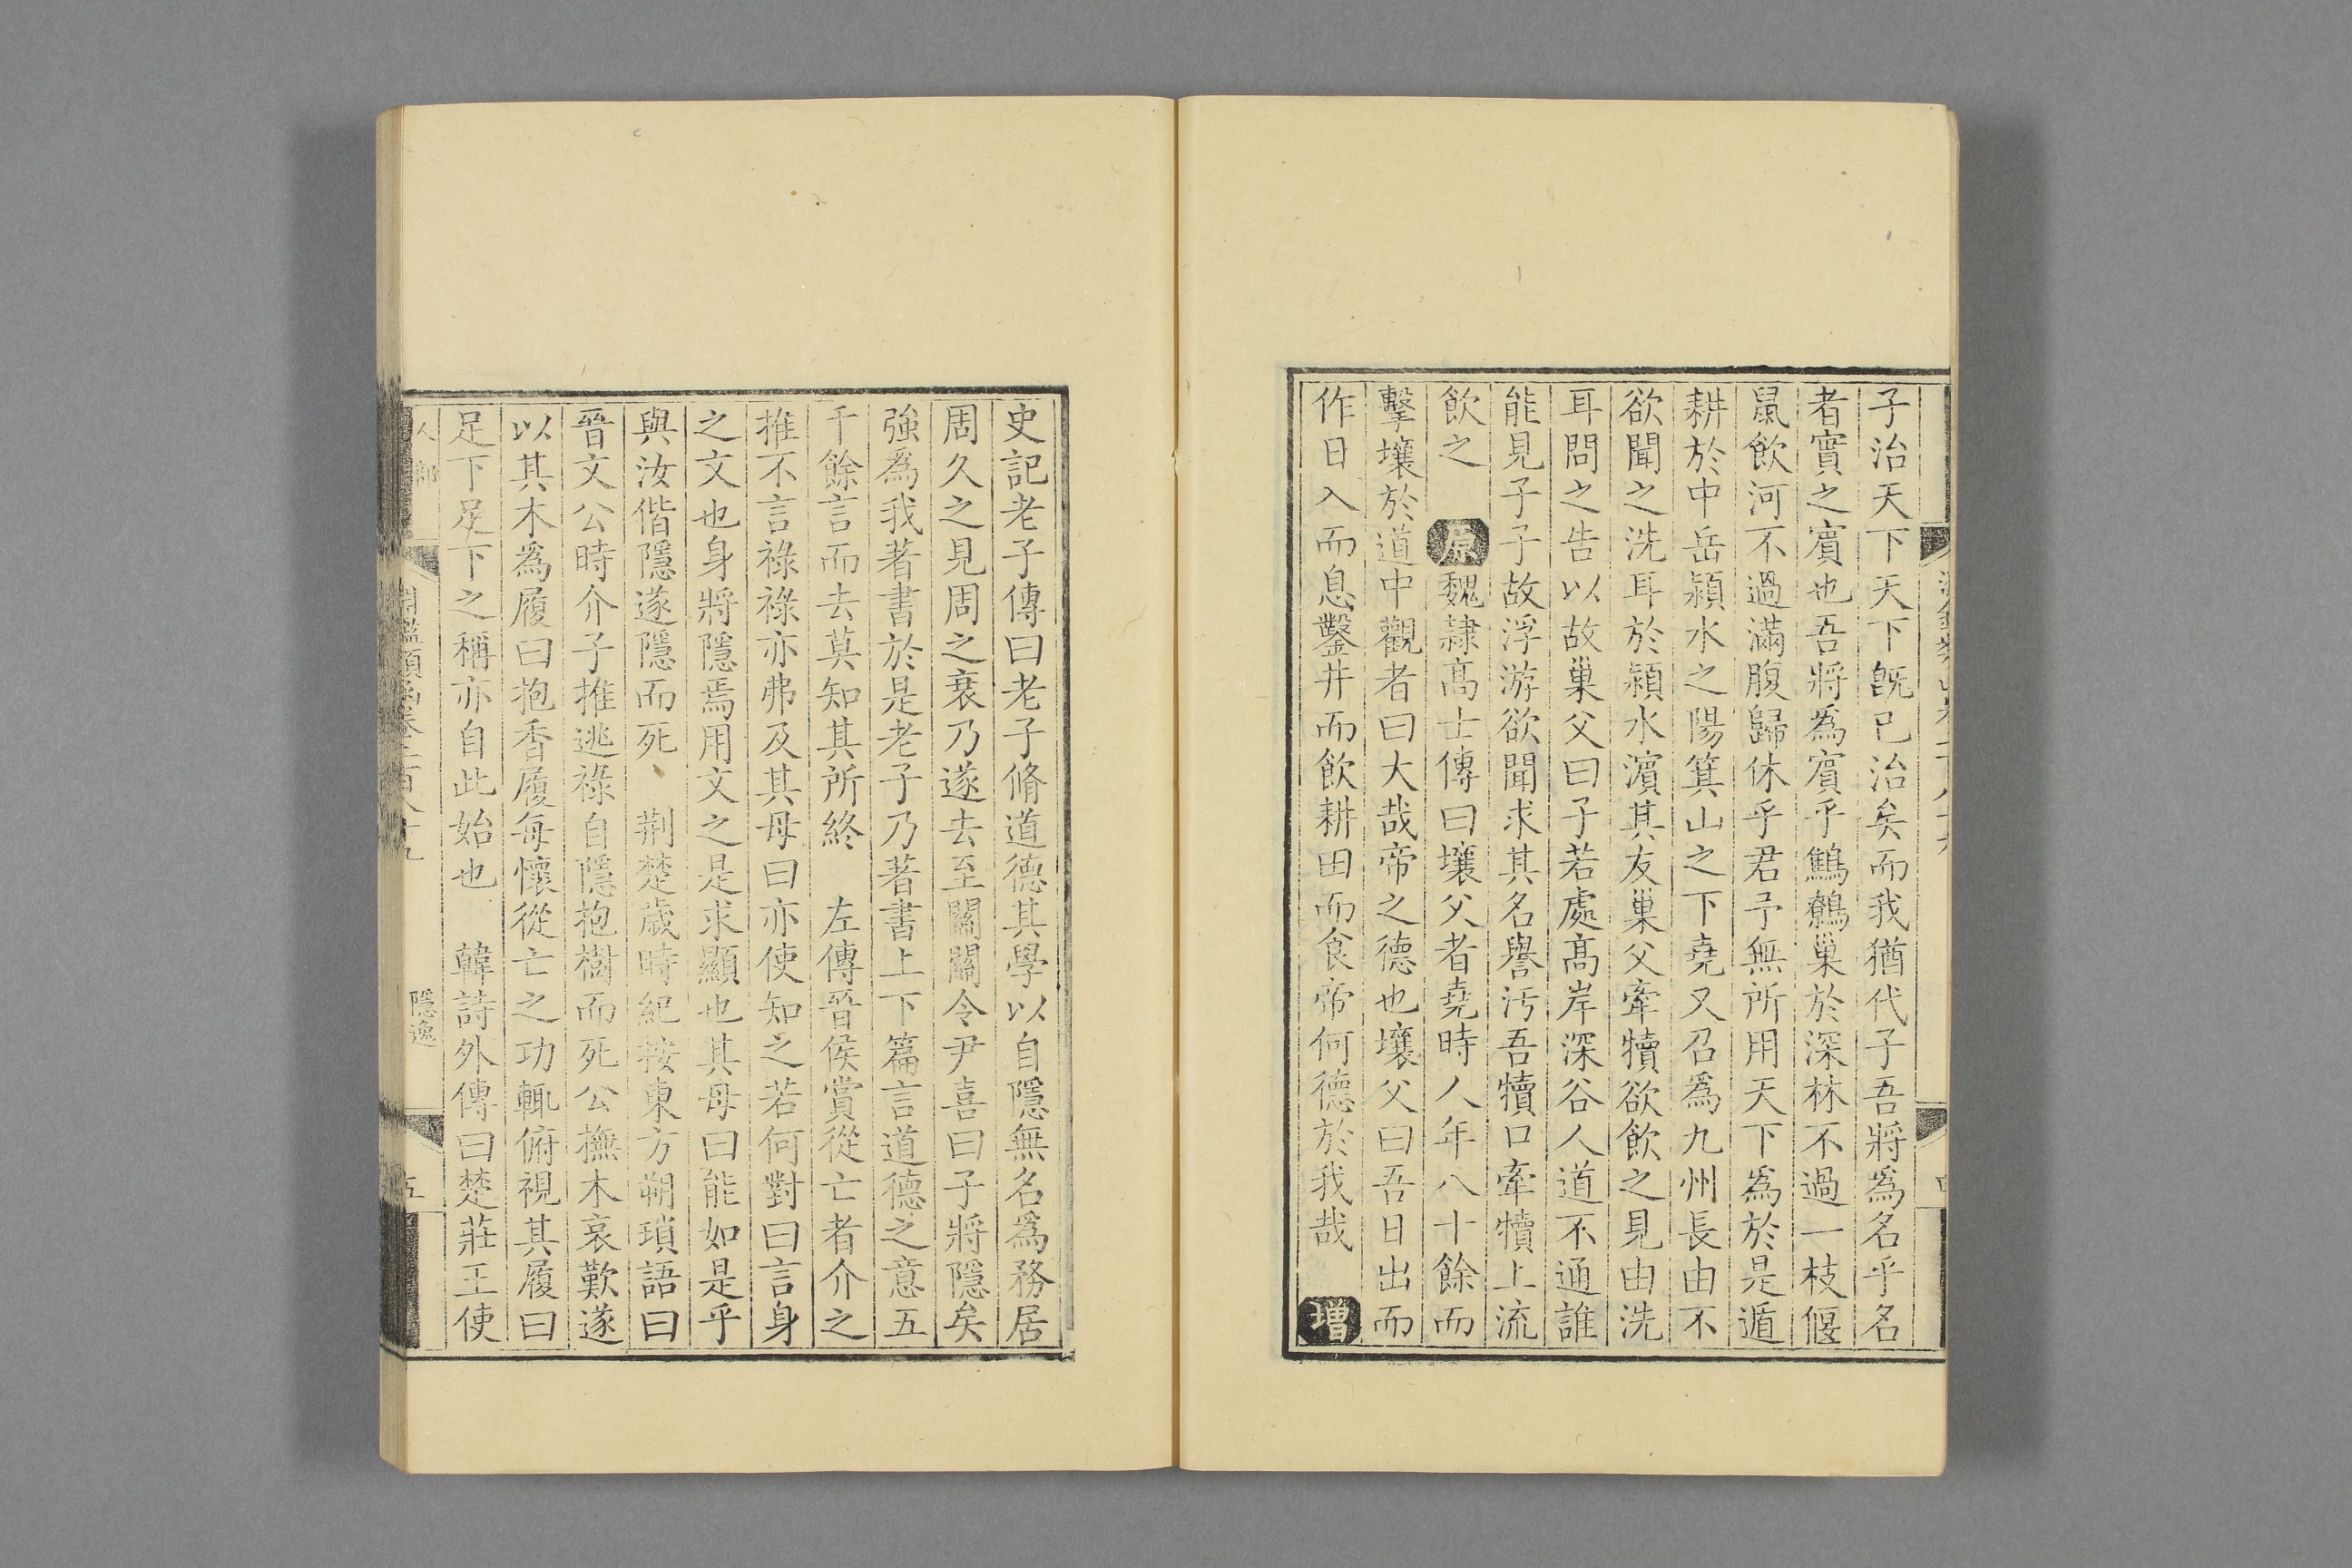 子治天下天下旣已治矣而我猶代子吾將爲名乎名
者實之賓也吾將爲賓乎鷦鷯巢於深林不過一枝偃
鼠飲河不過滿腹歸休乎君予無所用天下爲於是遁
耕於中岳潁水之陽箕山之下堯又召爲九州長由不
欲聞之洗耳於潁水濵其友巢父牽犢欲飲之見由洗
耳問之告以故巢父曰子若處髙岸深谷人道不通誰
能見子子故浮游欲聞求其名譽汚吾犢口牽犢上流
飲之 原魏隷髙士傳曰壤父者堯時人年八十餘而
擊壤於道中觀者曰大哉帝之德也壤父曰吾日出而
作日入而息鑿井而飲耕田而食帝何德於我哉 増
史記老子傳曰老子脩道德其學以自隱無名爲務居
周久之見周之衰乃遂去至關關令尹喜曰子將隱矣
強爲我著書於是老子乃著書上下篇言道德之意五
千餘言而去莫知其所終 左傳晉侯賞從亡者介之
推不言祿祿亦弗及其母曰亦使知之若何對曰言身
之文也身將隱焉用文之是求顯也其母曰能如是乎
與汝偕隱遂隱而死 荆楚歲時紀按東方朔瑣語曰
晉文公時介子推逃祿自隱抱樹而死公撫木哀歎遂
以其木爲履曰抱香履每懷從亡之功輒俯視其履曰
足下足下之稱亦自此始也 韓詩外傳曰楚莊王使
人部 淵鑑類函卷二百八十九 隱逸 五